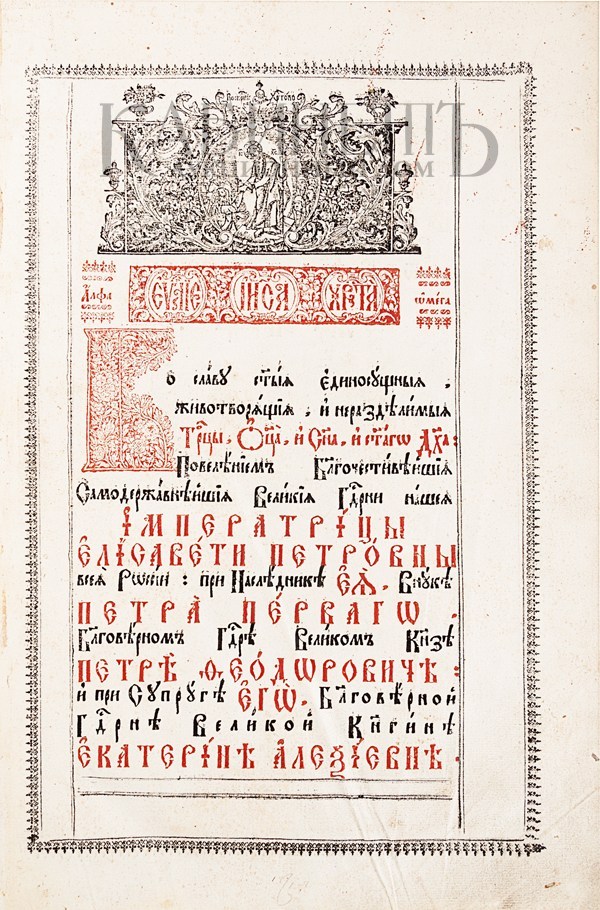 КАБИНЕТЪ
АУКЦИОННЫЙ ДОМ
Алфа
ЕѴАГГЕ ЛІЕ ІИСА ХРТА
ѡмега
Во славу ст҃ыя единосущныя,
животворящїя, и нераздѣлимыя
Трⷪ҇цы, Ѻц҃а, и Сн҃а, и ст҃агѡ Дх҃а:
Повелѣнїемъ Благочестивѣйшїя
Самодержавнѣйшїя Великїя Гдⷭ҇рни нашея
ІМПЕРАТРІ́ЦЫ
ЕЛІСАВЕ́ТИ ПЕТРО́ВНЫ
всея Рѡссїи: при Наслѣдникѣ ЕЯ̀. Внукѣ
ПЕТРА̀ ПЕ́РВАГѠ.
Благовѣрномъ Гдⷭ҇рѣ Великомъ Кнѧ҃зѣ
ПЕТРѢ̀ Ѳ҆ЕО́ДѠРОВИЧѢ:
и при Супругѣ ЕГѠ̀. Благовѣрной
Гдⷭ҇рнѣ Великой Кнѧги́нѣ
ЕКАТЕРІ́НѢ АЛЕѮІЕВНѢ.